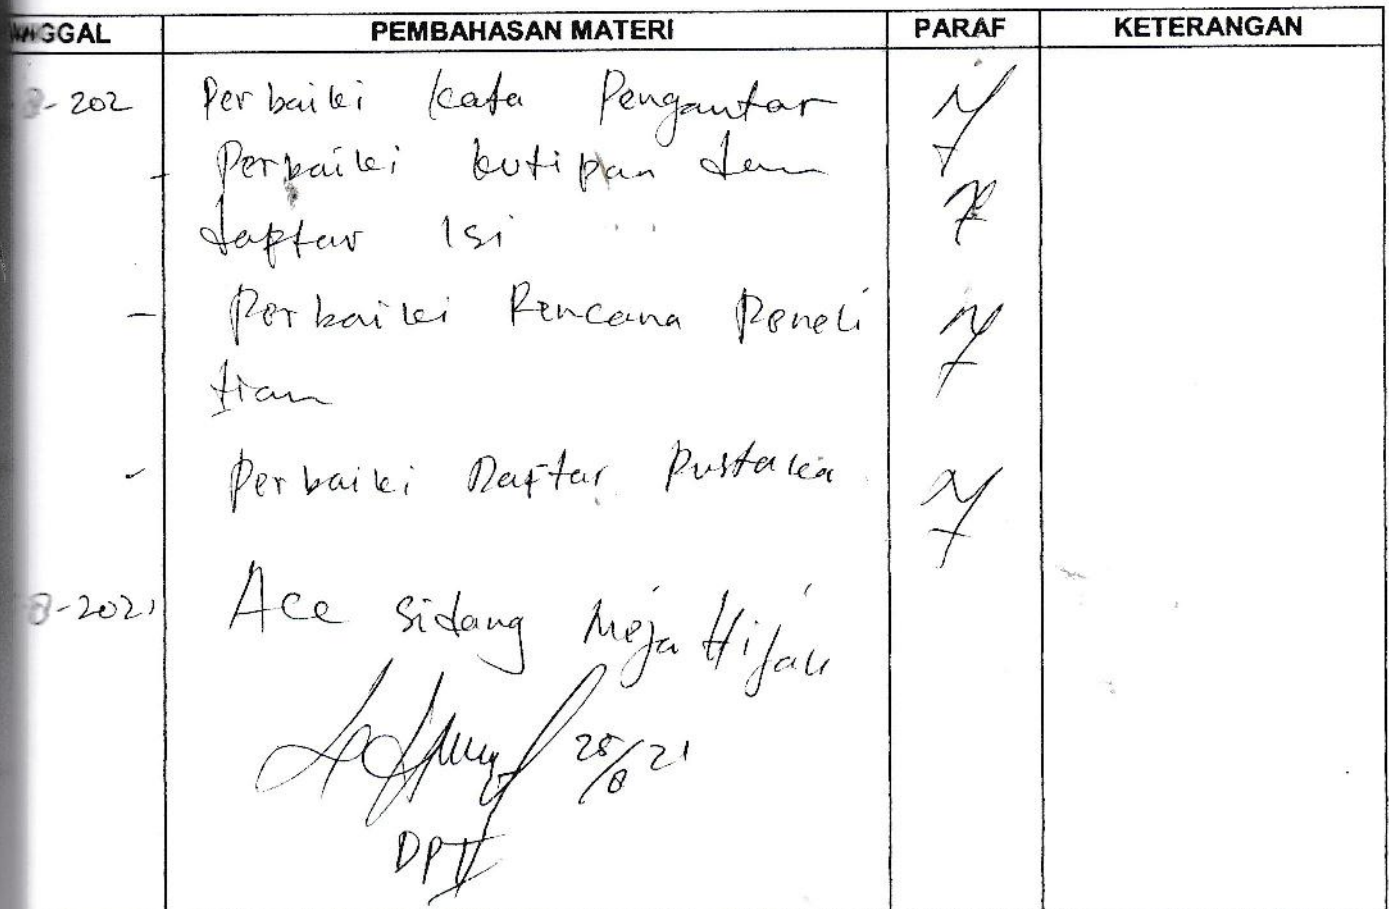 TANGGAL PEMBAHASAN MATERI PARAF KETERANGAN
8-202 Perbaiki kata Pengantar
- Perbaiki kutipan dan
daftar Isi
- Perbaiki Rencana Peneli
tian
- Perbaiki Daftar Pustaka
8-2021 Acc Sidang Meja Hijau
25/8 21
DP II